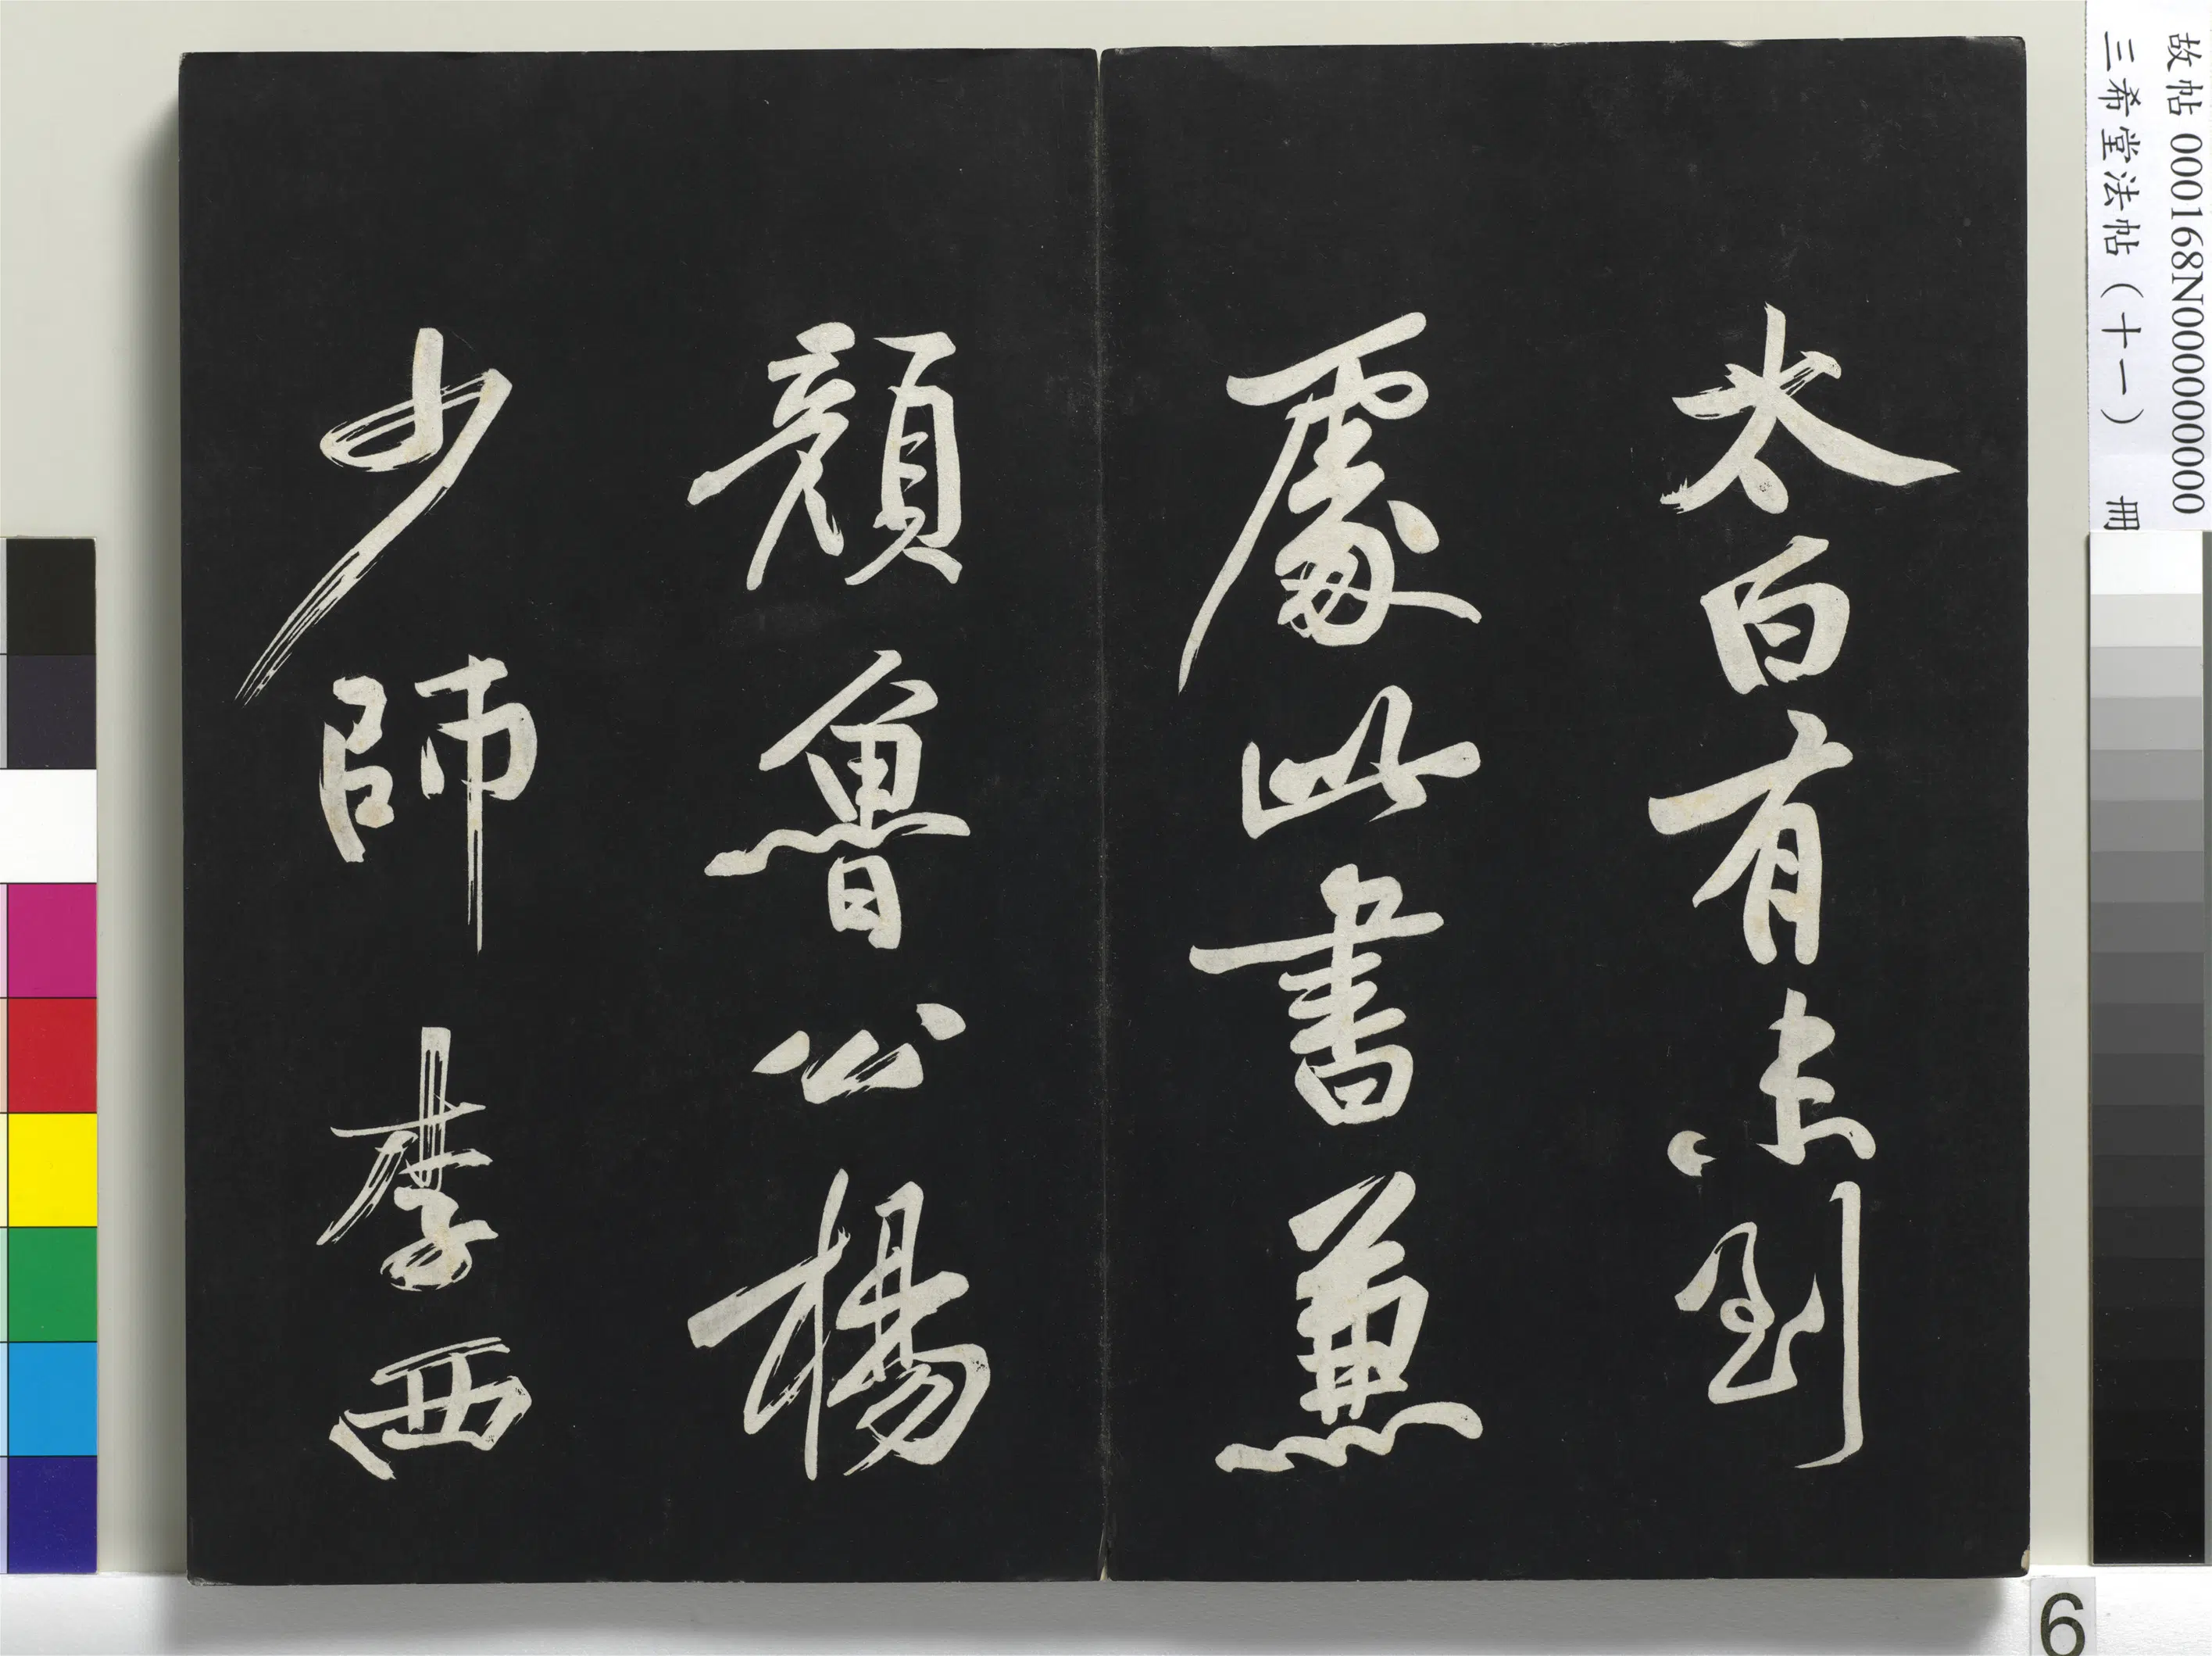 故帖000168N000000000
三希堂法帖（十一） 冊
太白有未到
處此書兼
顏魯公楊
少師李西
6